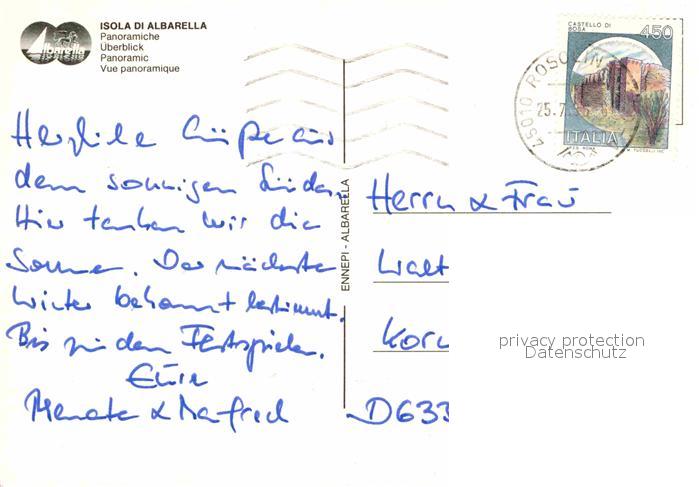 ISOLA DI ALBARELLA
Panoramiche
Überblick
Panoramic
Vue panoramique
Albarella
CASTELLO DI
BOSA
450
ITALIA
45010 ROSOLINA
25.7
Herzliche Grüße aus
dem sonnigen Süden.
Hier tanken wir die
Sonne. Der nächste
Winter bekommt bestimmt.
Bis zu den Festspielen.
Eure
Renate & Manfred
ENNEPI - ALBARELLA
Herrn & Frau
Walt
Kor
D633
privacy protection
Datenschutz